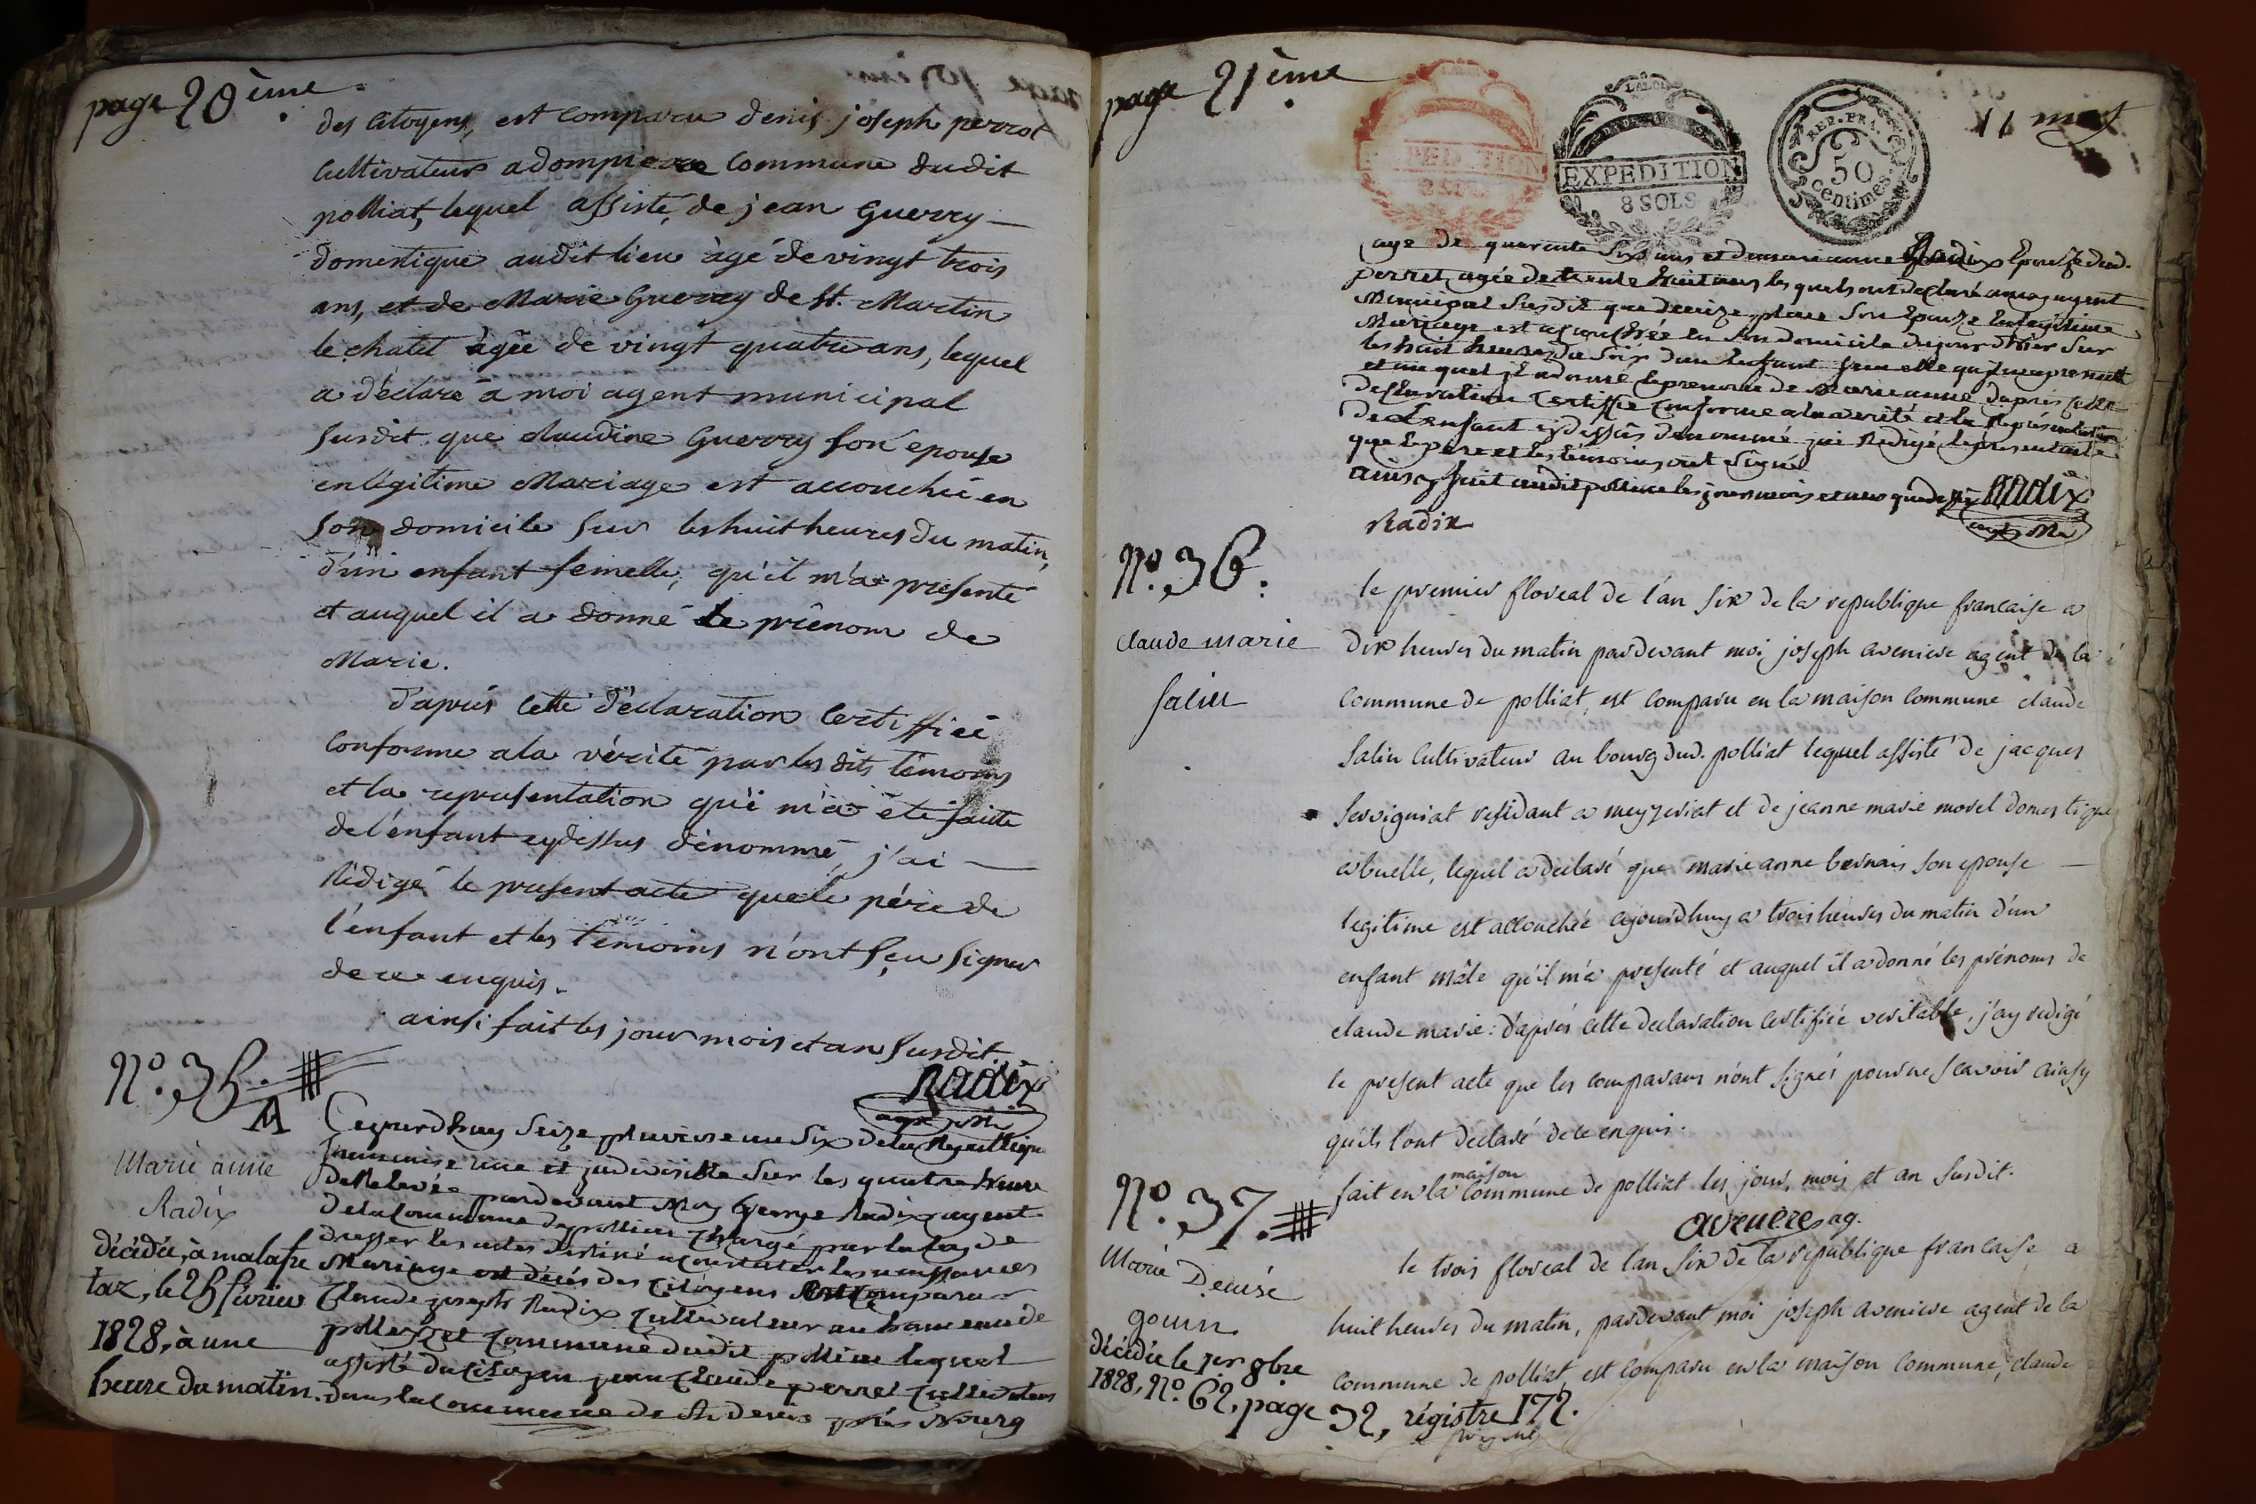 page 20ème.
des citoyens, est comparu denis joseph perrot
cultivateur a dompierre commune dudit
polliat, lequel assisté de jean Guerry
domestique audit lieu âgé de vingt trois
ans, et de Marie Guerrey de st. Martin
le chatel âgée de vingt quatre ans, lequel
a déclaré à moi agent municipal
susdit que claudine Guerry son epouse
en légitime Mariage est accouchée en
son domicile sur les huit heures du matin,
d'un enfant femelle, qu'il m'a presenté
et auquel il a donné le prénom de
Marie.
d'après cette déclaration certiffiée
conforme a la vérité par les dits témoins
et la representation qui m'a été faitte
de l'enfant cydessus dénommé, j'ai
Rédigé le present acte que le père de
l'enfant et les témoins n'ont sçu signer
de ce enquis.
ainsi fait les jour mois et an susdit.
Radix
agt mi
N.o 35.
A
Marie anne
Radix
décédée, à malafre
taz, le 25 février
1828, à une
heure du matin.
Cejourdhuy seize pluviose an six de la Republique
francaise une et indivisible sur les quatre heure
de Relevée pardevant Moy George Radix agent
de la Commune de polliat chargé par la loy de
dresser les actes destiné a Constater les naissances
Mariage et décés des Citoyens est Comparu
Claude joseph Radix Cultivateur au hameau de
Commune dudit polliat lequel
assisté du Citoyen jean Claude perret Cultivateur
dans la Commune de St. Denis près Bourg
page 21ème
EXPEDITION
8 SOLS
EXPEDITION
8 SOLS
REP. FRA.
50
centimes.
age de quarente six ans et de marianne Radix Epouse dud.
perret agée de trente huit ans les quels ont declaré a moy agent
Municipal susdit que son Epouze en legitime
Mariage est acouchée en son domicile du jour dhier sur
les huit heures du soir dun Enfant femelle quil ma presenté
et au quel il a donné le prenom de Marieanne dapres cette
declaration Certiffié Conforme a la verité et la Représentation
de Lenfant cydessus denommé jai Redigé le present acte
que le pere et les témoins ont signé
ainsy fait audit polliat les jour mois et an que dessus Radix
Radix
agt Mu
N.o 36.
claude marie
Salin
le premier floreal de l'an six de la republique francaise a
dix heures du matin pardevant moi joseph aveniere agent de la
commune de polliat, est comparu en la maison commune claude
Salin cultivateur au bourg dud. polliat lequel assisté de jacques
Servigniat residant a meyzeriat et de jeanne marie morel domestique
a buelle, lequel a declaré que marie anne bernais son epouse
legitime est accouchée ajourdhuy a trois heures du matin d'un
enfant mâle qu'il m'a presenté et auquel il a donné les prénoms de
claude marie: d'après cette declaration certifiée veritable, j'ay redigé
le present acte que les comparans n'ont signés pour ne scavoir ainsy
qu'ils l'ont declaré de ce enquis.
fait en la maison commune de polliat les jour, mois et an susdit.
aveniere ag.
N.o 37.
Marie Denise
gouin
décédée le 1er 8bre
1828, N.o 62, page 32, régistre 172.
le trois floreal de l'an six de la republique francaise a
huit heures du matin, pardevant moi joseph aveniere agent de la
commune de polliat, est comparu en la maison commune, claude